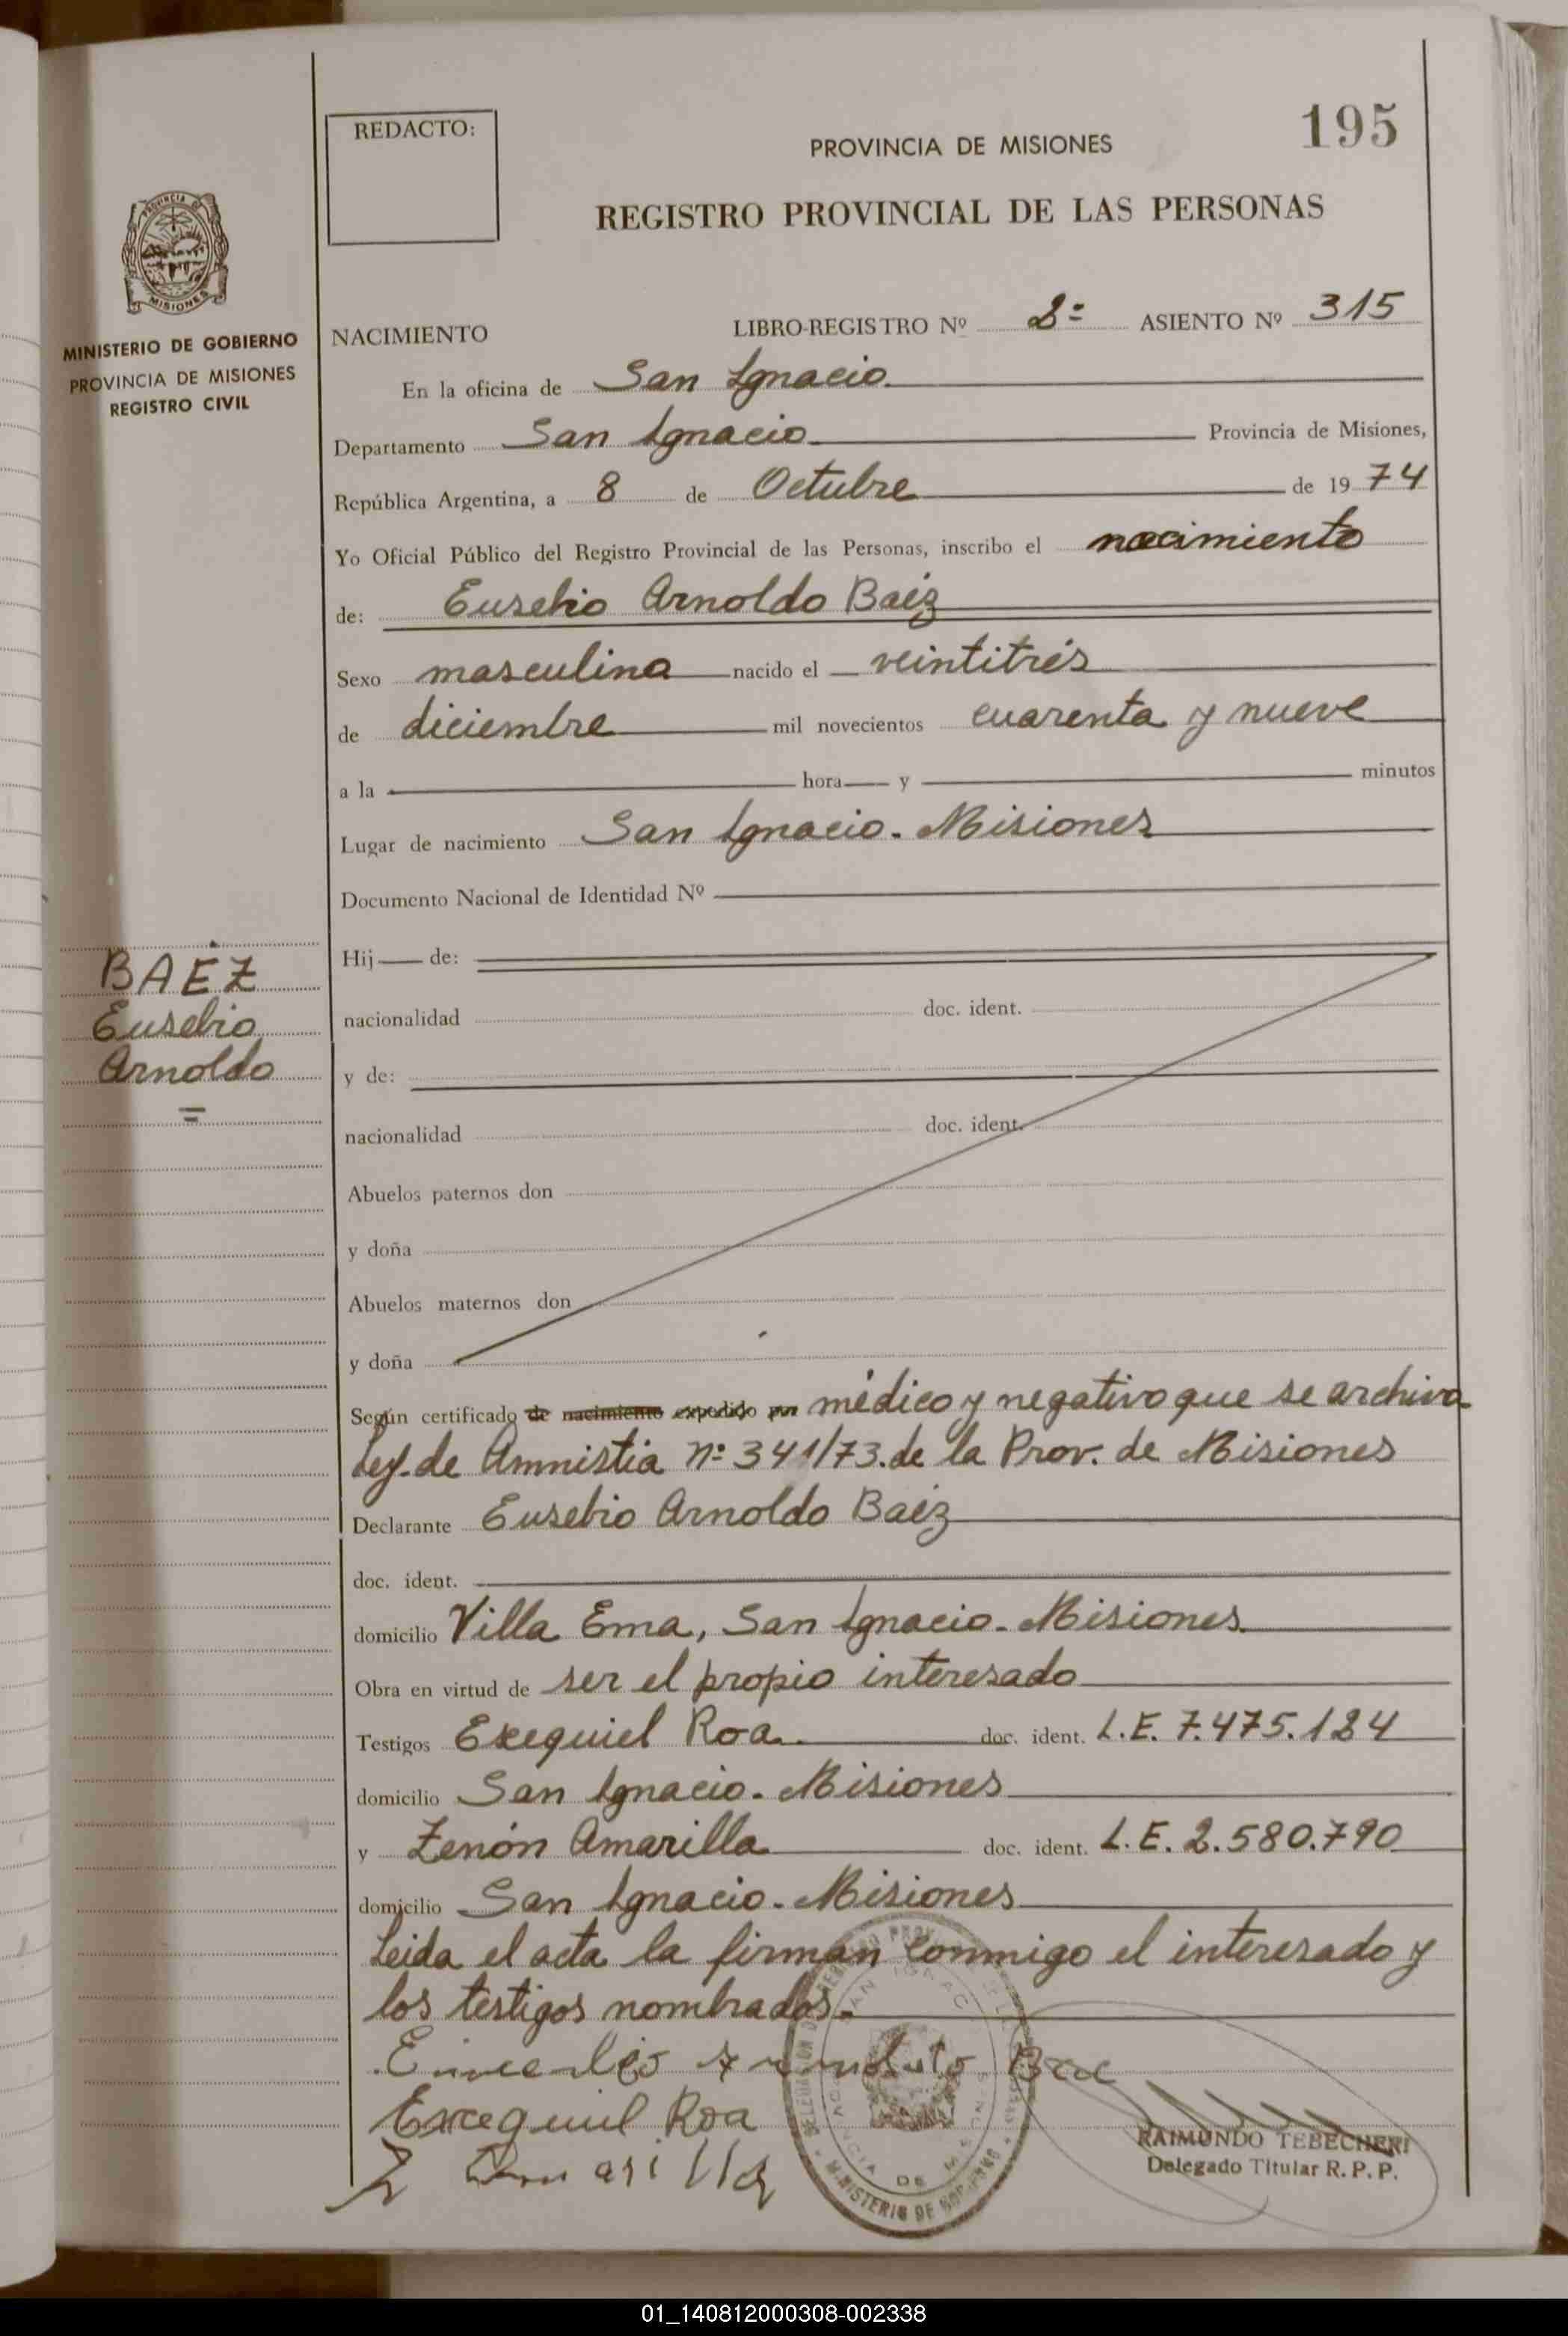 195
REDACTO:
PROVINCIA DE MISIONES
REGISTRO PROVINCIAL DE LAS PERSONAS
MISIONES
MINISTERIO DE GOBIERNO
PROVINCIA DE MISIONES
REGISTRO CIVIL
NACIMIENTO LIBRO-REGISTRO Nº 2º ASIENTO Nº 315
En la oficina de San Ignacio
Departamento San Ignacio Provincia de Misiones,
República Argentina, a 8 de Octubre de 1974
Yo Oficial Público del Registro Provincial de las Personas, inscribo el nacimiento
de: Eusebio Arnoldo Baéz
Sexo masculino nacido el veintitrés
de diciembre mil novecientos cuarenta y nueve
a la hora y minutos
Lugar de nacimiento San Ignacio. Misiones
Documento Nacional de Identidad Nº
Hij de:
nacionalidad doc. ident.
y de:
nacionalidad doc. ident.
Abuelos paternos don
y doña
Abuelos maternos don
y doña
BAEZ
Eusebio
Arnoldo
Según certificado de nacimiento expedido por médico y negativo que se archiva
Ley. de Amnistia nº 341/73. de la Prov. de Misiones
Declarante Eusebio Arnoldo Baéz
doc. ident.
domicilio Villa Ema, San Ignacio. Misiones
Obra en virtud de ser el propio interesado
Testigos Exequiel Roa doc. ident. L.E. 7.475.184
domicilio San Ignacio. Misiones
y Zenón Amarilla doc. ident. L.E. 2.580.790
domicilio San Ignacio. Misiones
Leida el acta la firman conmigo el interesado y
los testigos nombrados.
Exequiel Roa
Z Amarilla
MINISTERIO DE GOBIERNO
RAIMUNDO TEBECHERI
Delegado Titular R. P. P.
01_140812000308-002338